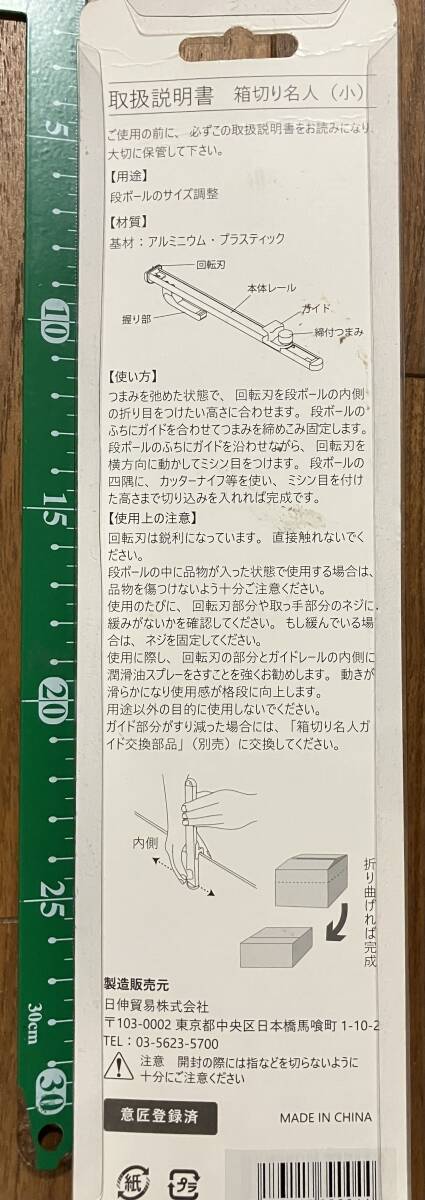 取扱説明書 箱切り名人（小）
ご使用の前に、必ずこの取扱説明書をお読みになり、
大切に保管して下さい。
【用途】
段ボールのサイズ調整
【材質】
基材：アルミニウム・プラスティック
回転刃
本体レール
ガイド
握り部
締付つまみ
【使い方】
つまみを弛めた状態で、回転刃を段ボールの内側
の折り目をつけたい高さに合わせます。段ボールの
ふちにガイドを合わせてつまみを締めこみ固定します。
段ボールのふちにガイドを沿わせながら、回転刃を
横方向に動かしてミシン目をつけます。段ボールの
四隅に、カッターナイフ等を使い、ミシン目を付け
た高さまで切り込みを入れれば完成です。
【使用上の注意】
回転刃は鋭利になっています。直接触れないでく
ださい。
段ボールの中に品物が入った状態で使用する場合は、
品物を傷つけないよう十分ご注意ください。
使用のたびに、回転刃部分や取っ手部分のネジに、
緩みがないかを確認してください。もし緩んでいる場
合は、ネジを固定してください。
使用に際し、回転刃の部分とガイドレールの内側に
潤滑油スプレーをさすことを強くお勧めします。動きが
滑らかになり使用感が格段に向上します。
用途以外の目的に使用しないでください。
ガイド部分がすり減った場合には、「箱切り名人ガ
イド交換部品」（別売）に交換してください。
内側
折り曲げれば完成
製造販売元
日伸貿易株式会社
〒103-0002 東京都中央区日本橋馬喰町 1-10-2
TEL：03-5623-5700
注意 開封の際には指などを切らないように
十分にご注意ください
意匠登録済
MADE IN CHINA
紙
プラ
5
10
15
20
25
30cm
30